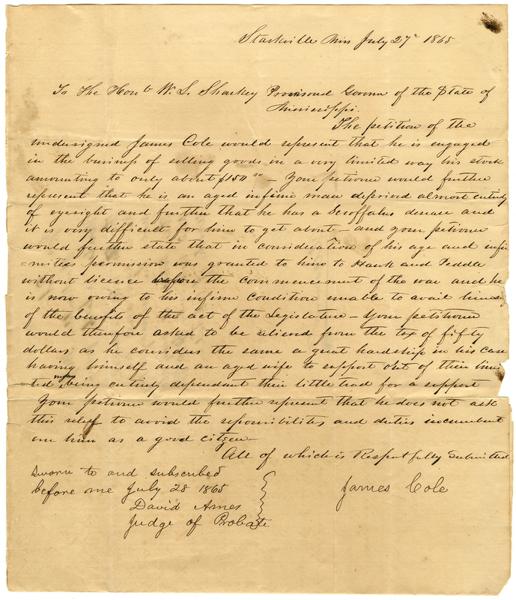 Starkville Miss July 27th 1865
To The Honb W. L. Sharkey Provisional Govenor of the State of
Mississippi.
The petition of the
undersigned James Cole would represent that he is engaged
in the business of selling goods in a very limited way his stock
amounting to only about $150.00 – Your petioner would further
represent that he is an aged infirm man deprived almost entirely
of eyesight and further that he has a Scroffalus desease and
it is very difficult for him to get about – and your petioner
would further state that in consideration of his age and infir
-mities permission was granted to him to Hawk and Peddle
without licence before the commencement of the war and he
is now owing to his infirm condition unable to avail himself
of the benefits of the act of the Legislature – Your petitioner
would therefore asked to be relieved from the tax of fifty
dollars as he considers the same a great hardship in his case
having himself and an aged wife to support out of their limi
ted being entirely dependant their little trad for a support
Your petioner would further represent that he does not ask
this relief to avoid the reponsibilities and duties incumbent
on him as a good citizen –
All of which is Respectfully Submitted
James Cole
Sworn to and subscribed
before me July 28 1865
David Ames
Judge of Probate